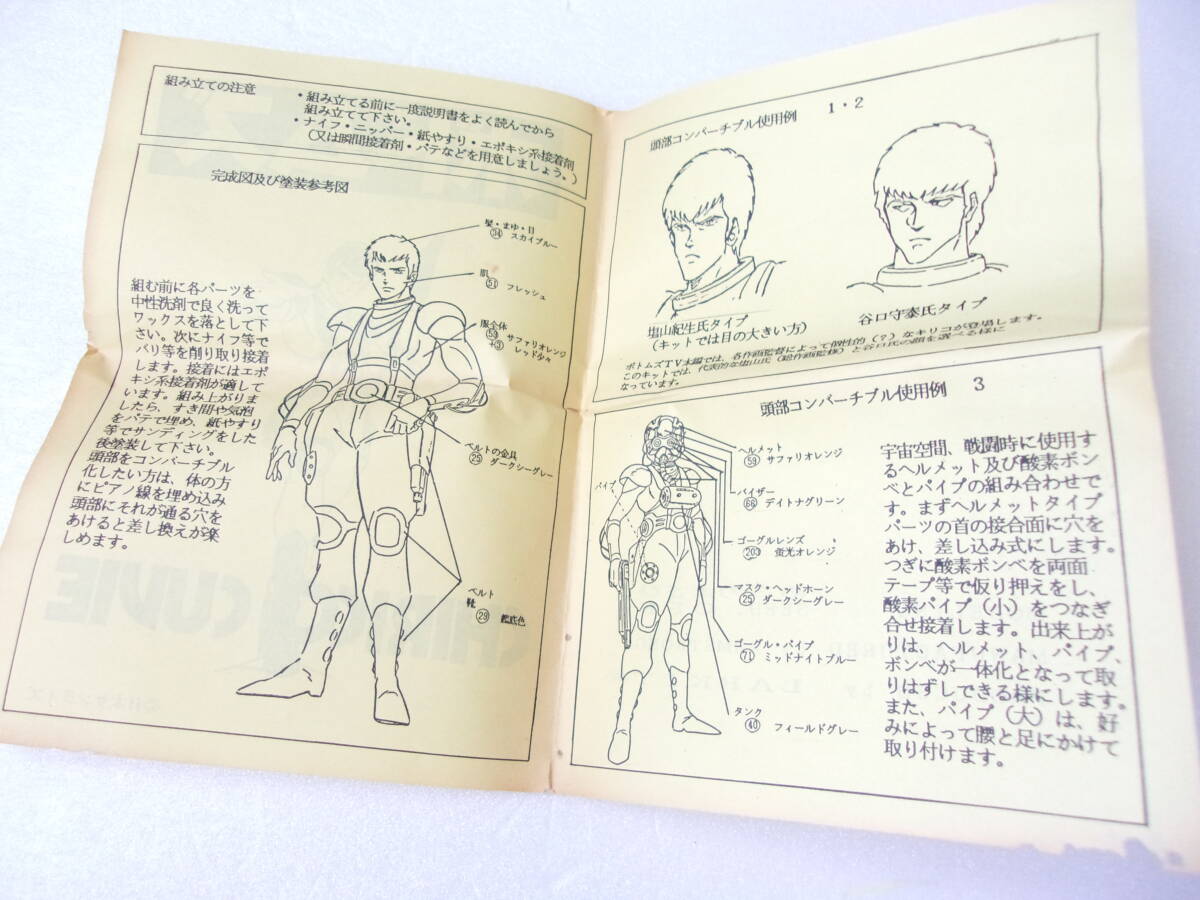 組み立ての注意
・組み立てる前に一度説明書をよく読んでから
組み立てて下さい。
・ナイフ・ニッパー・紙やすり・エポキシ系接着剤
(又は瞬間接着剤・パテなどを用意しましょう。)
完成図及び塗装参考図
組む前に各パーツを
中性洗剤で良く洗って
ワックスを落として下
さい。次にナイフ等で
バリ等を削り取り接着
します。接着にはエポ
キシ系接着剤が適して
います。組み上がりま
したら、すき間や気泡
をパテで埋め、紙やすり
等でサンディングをした
後塗装して下さい。
頭部をコンバーチブル
化したい方は、体の方
にピアノ線を埋め込み
頭部にそれが通る穴を
あけると差し換えが楽
しめます。
髪・まゆ・目
34 スカイブルー
肌
51 フレッシュ
服全体
59 サファリオレンジ
+3 レッド少々
ベルトの金具
25 ダークシーグレー
ベルト
靴
29 艦底色
頭部コンバーチブル使用例 1・2
塩山紀生氏タイプ
(キットでは目の大きい方)
谷口守泰氏タイプ
ボトムズTV本編では、各作画監督によって個性的(?)なキリコが登場します。
このキットでは、代表的な塩山氏(総作画監督)と谷口氏の顔を選べる様に
なっています。
頭部コンバーチブル使用例 3
パイプ
ヘルメット
59 サファリオレンジ
バイザー
66 デイトナグリーン
ゴーグルレンズ
203 蛍光オレンジ
マスク・ヘッドホーン
25 ダークシーグレー
ゴーグル・パイプ
71 ミッドナイトブルー
タンク
40 フィールドグレー
宇宙空間、戦闘時に使用す
るヘルメット及び酸素ボン
ベとパイプの組み合わせで
す。まずヘルメットタイプ
パーツの首の接合面に穴を
あけ、差し込み式にします。
つぎに酸素ボンベを両面
テープ等で仮り押えをし、
酸素パイプ(小)をつなぎ
合せ接着します。出来上が
りは、ヘルメット、パイプ、
ボンベが一体化となって取
りはずしできる様にします。
また、パイプ(大)は、好
みによって腰と足にかけて
取り付けます。